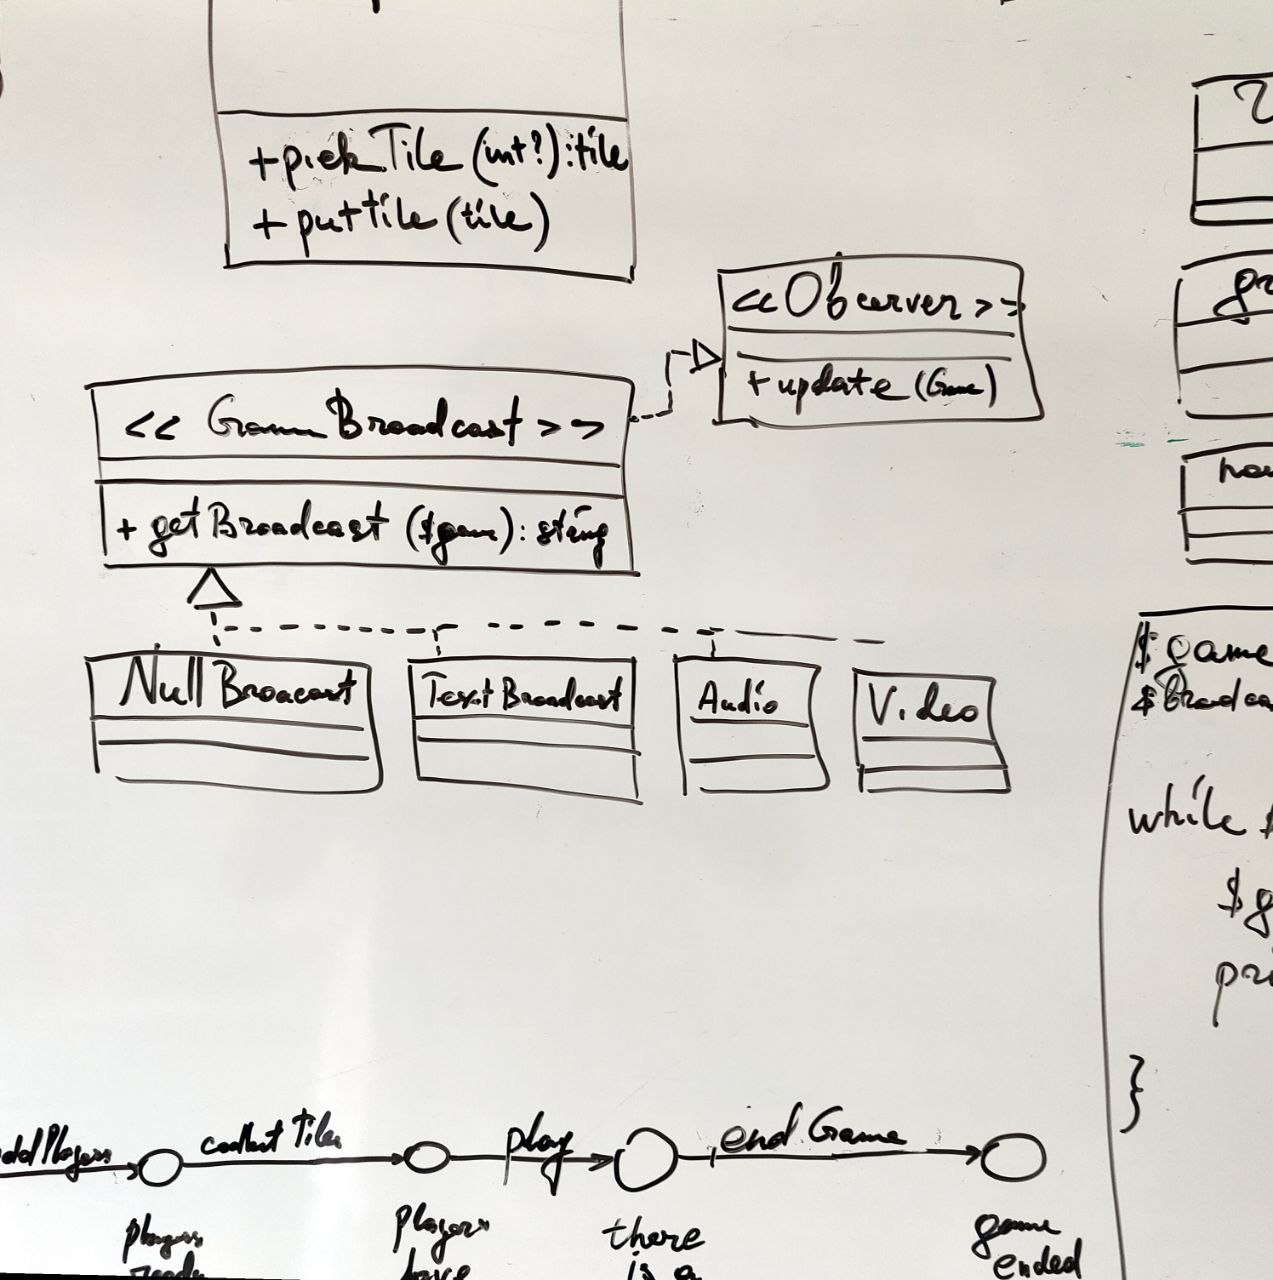 +pickTile (int?):tile
+ puttile (tile)
<<Observer>>
+ update (Game)
<< GameBroadcast >>
+ getBroadcast ($game): string
Null Broacast
Text Broadcast
Audio
Video
$game
while $
$g
pri
}
addPlayers
play
end Game
players
ready
players
have
there
is a
game
ended